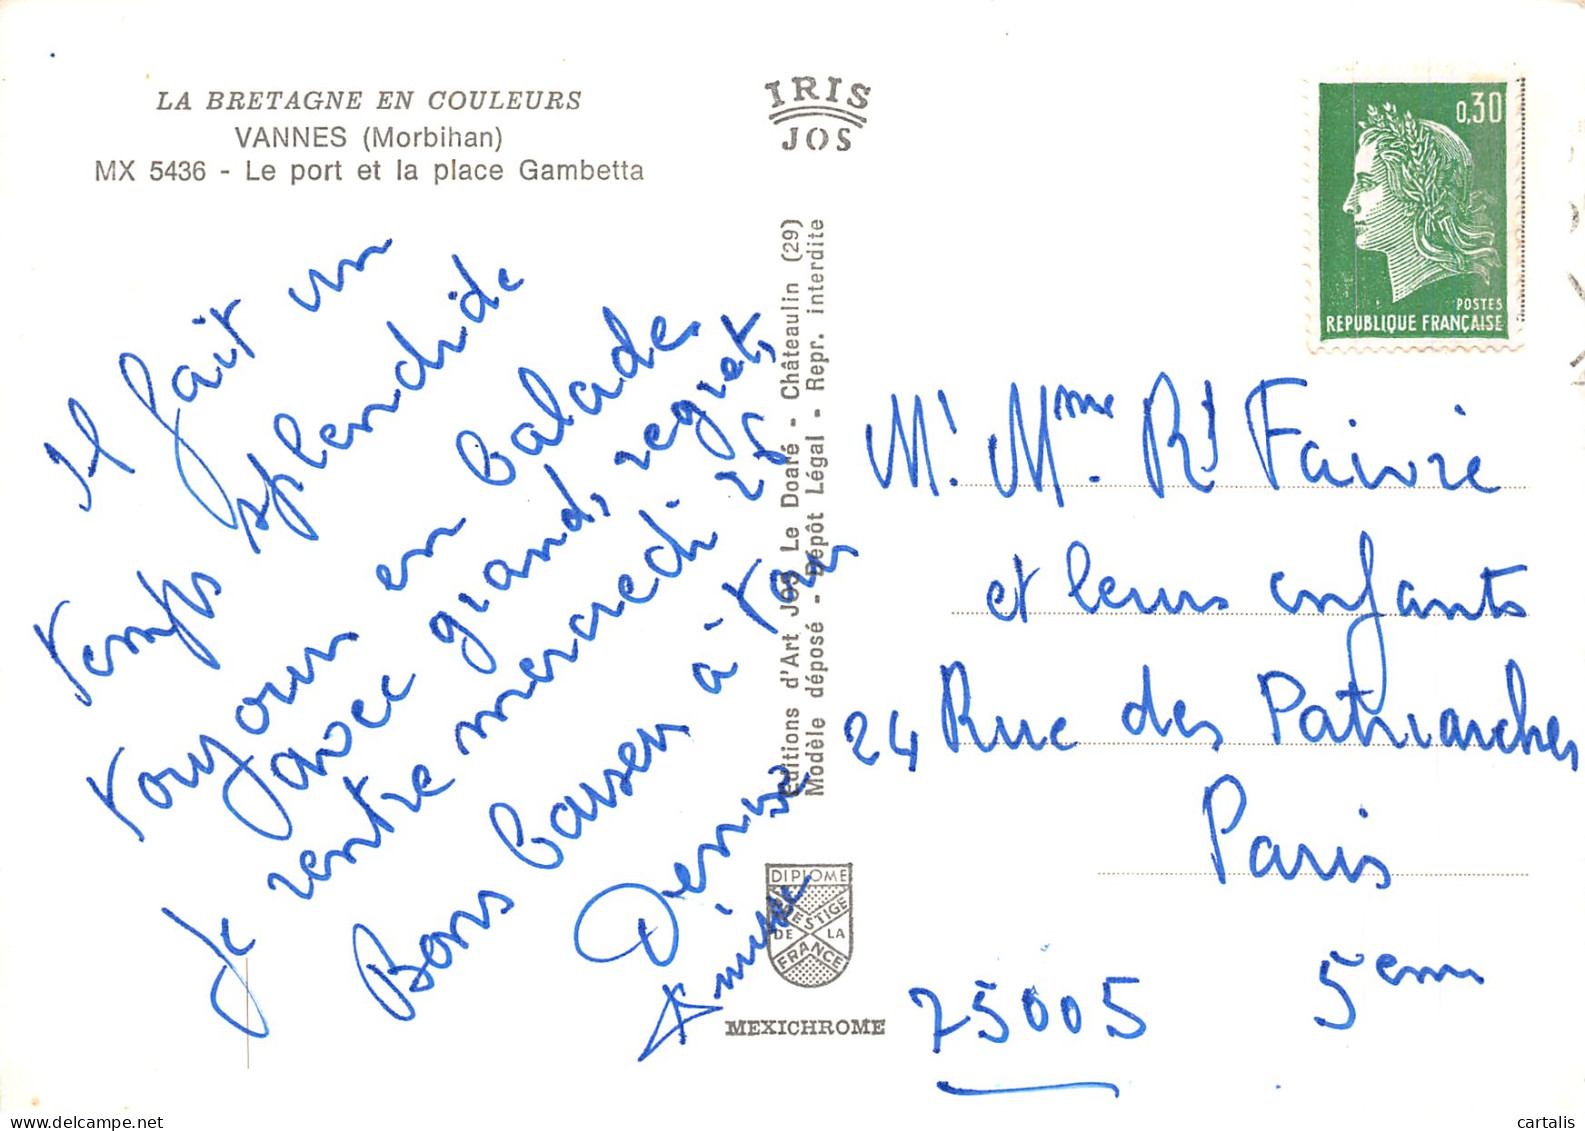 LA BRETAGNE EN COULEURS
VANNES (Morbihan)
MX 5436 - Le port et la place Gambetta
IRIS
JOS
Il fait un
temps splendide
voyons en balade
avec grands regrets
Je rentre mercredi 25
Bons baisers à vous
Denise
Editions d'Art JOS Le Doaré - Châteaulin (29)
Modèle déposé - Dépôt Légal - Repr. interdite
DIPLOME
PRESTIGE
DE LA
FRANCE
MEXICHROME
0,30
POSTES
REPUBLIQUE FRANÇAISE
M. Mme Rt Faivre
et leurs enfants
24 Rue des Patriarches
Paris
75005 5eme
cartalis